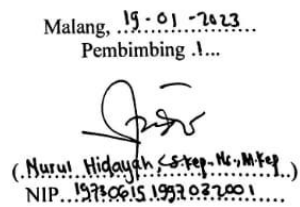 Malang, 19-01-2023
Pembimbing .1...
(Nurul Hidayah, S.Kep., Ns., M.Kep)
NIP. 197306151997032001